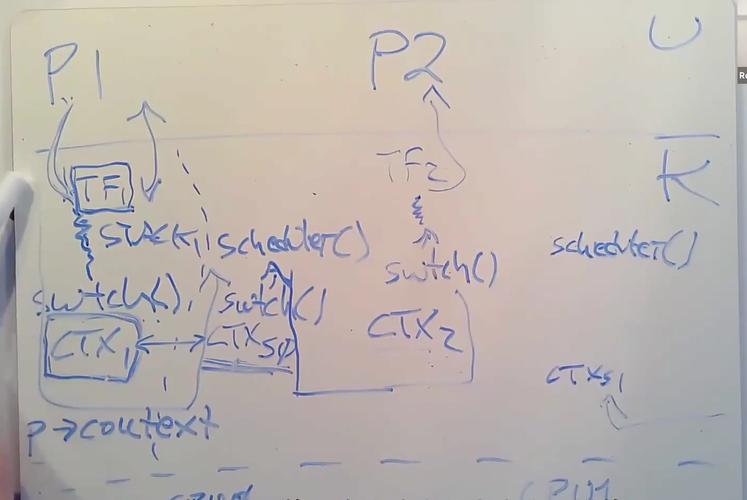 P1 P2 U
K
TF1 TF2
STACK1 scheduler() scheduler()
swtch() swtch() swtch()
CTX1 CTXS0 CTX2
CTXS1
p->context
CPU1